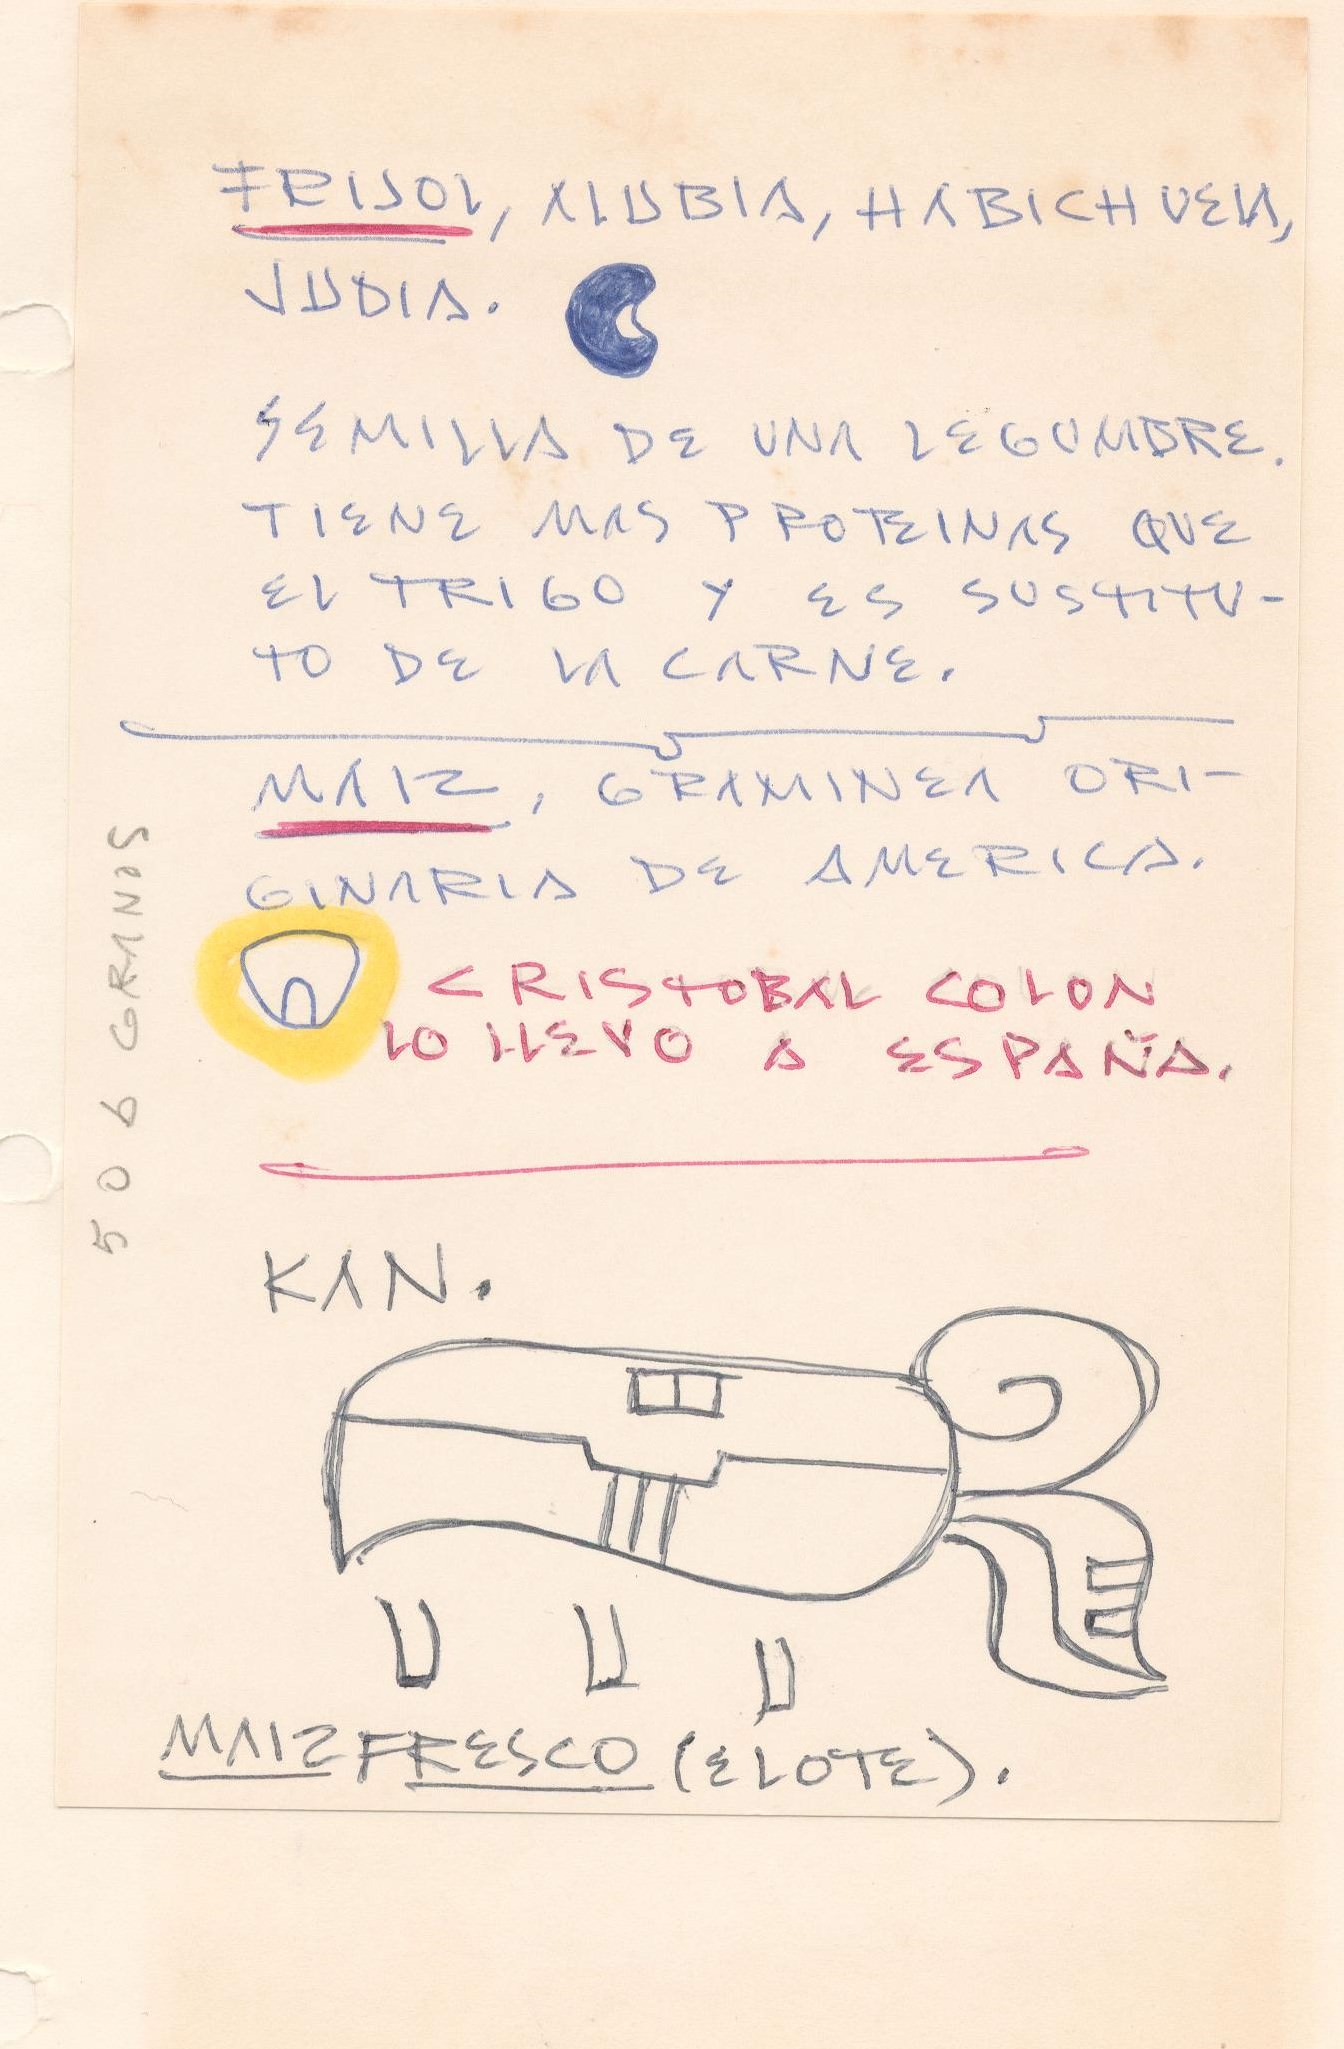 FRIJOL, ALUBIA, HABICHUELA,
JUDIA.
SEMILLA DE UNA LEGUMBRE.
TIENE MAS PROTEINAS QUE
EL TRIGO Y ES SUSTITU-
TO DE LA CARNE.
MAIZ, GRAMINEA ORI-
GINARIA DE AMERICA.
CRISTOBAL COLON
LO LLEVO A ESPAÑA.
506 GRANOS
KAN.
MAIZ FRESCO (ELOTE).